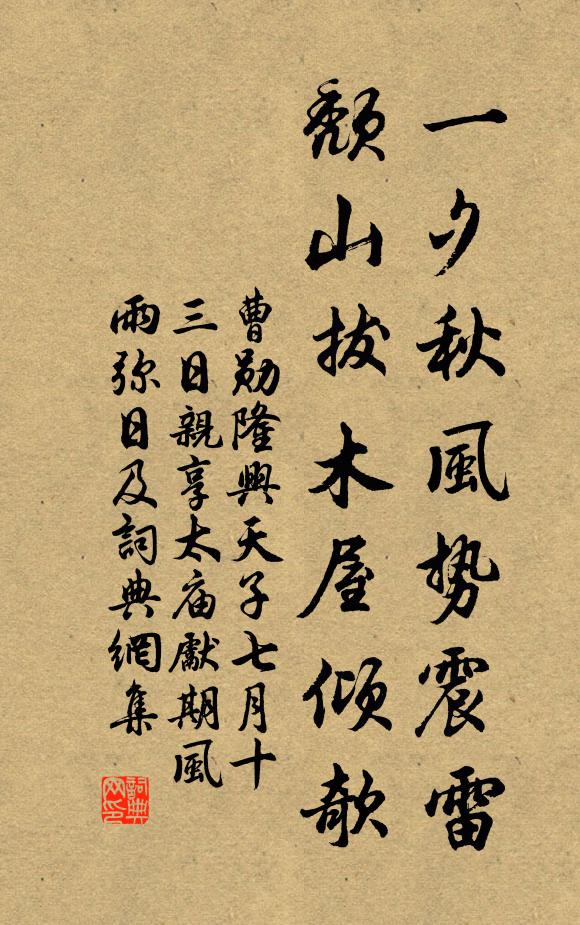 一夕秋風势震雷
頹山拔木屋傾欹
曹勋隆興天子七月十
三日親享太庙獻期風
雨弥日及詞典網集
詞典网印